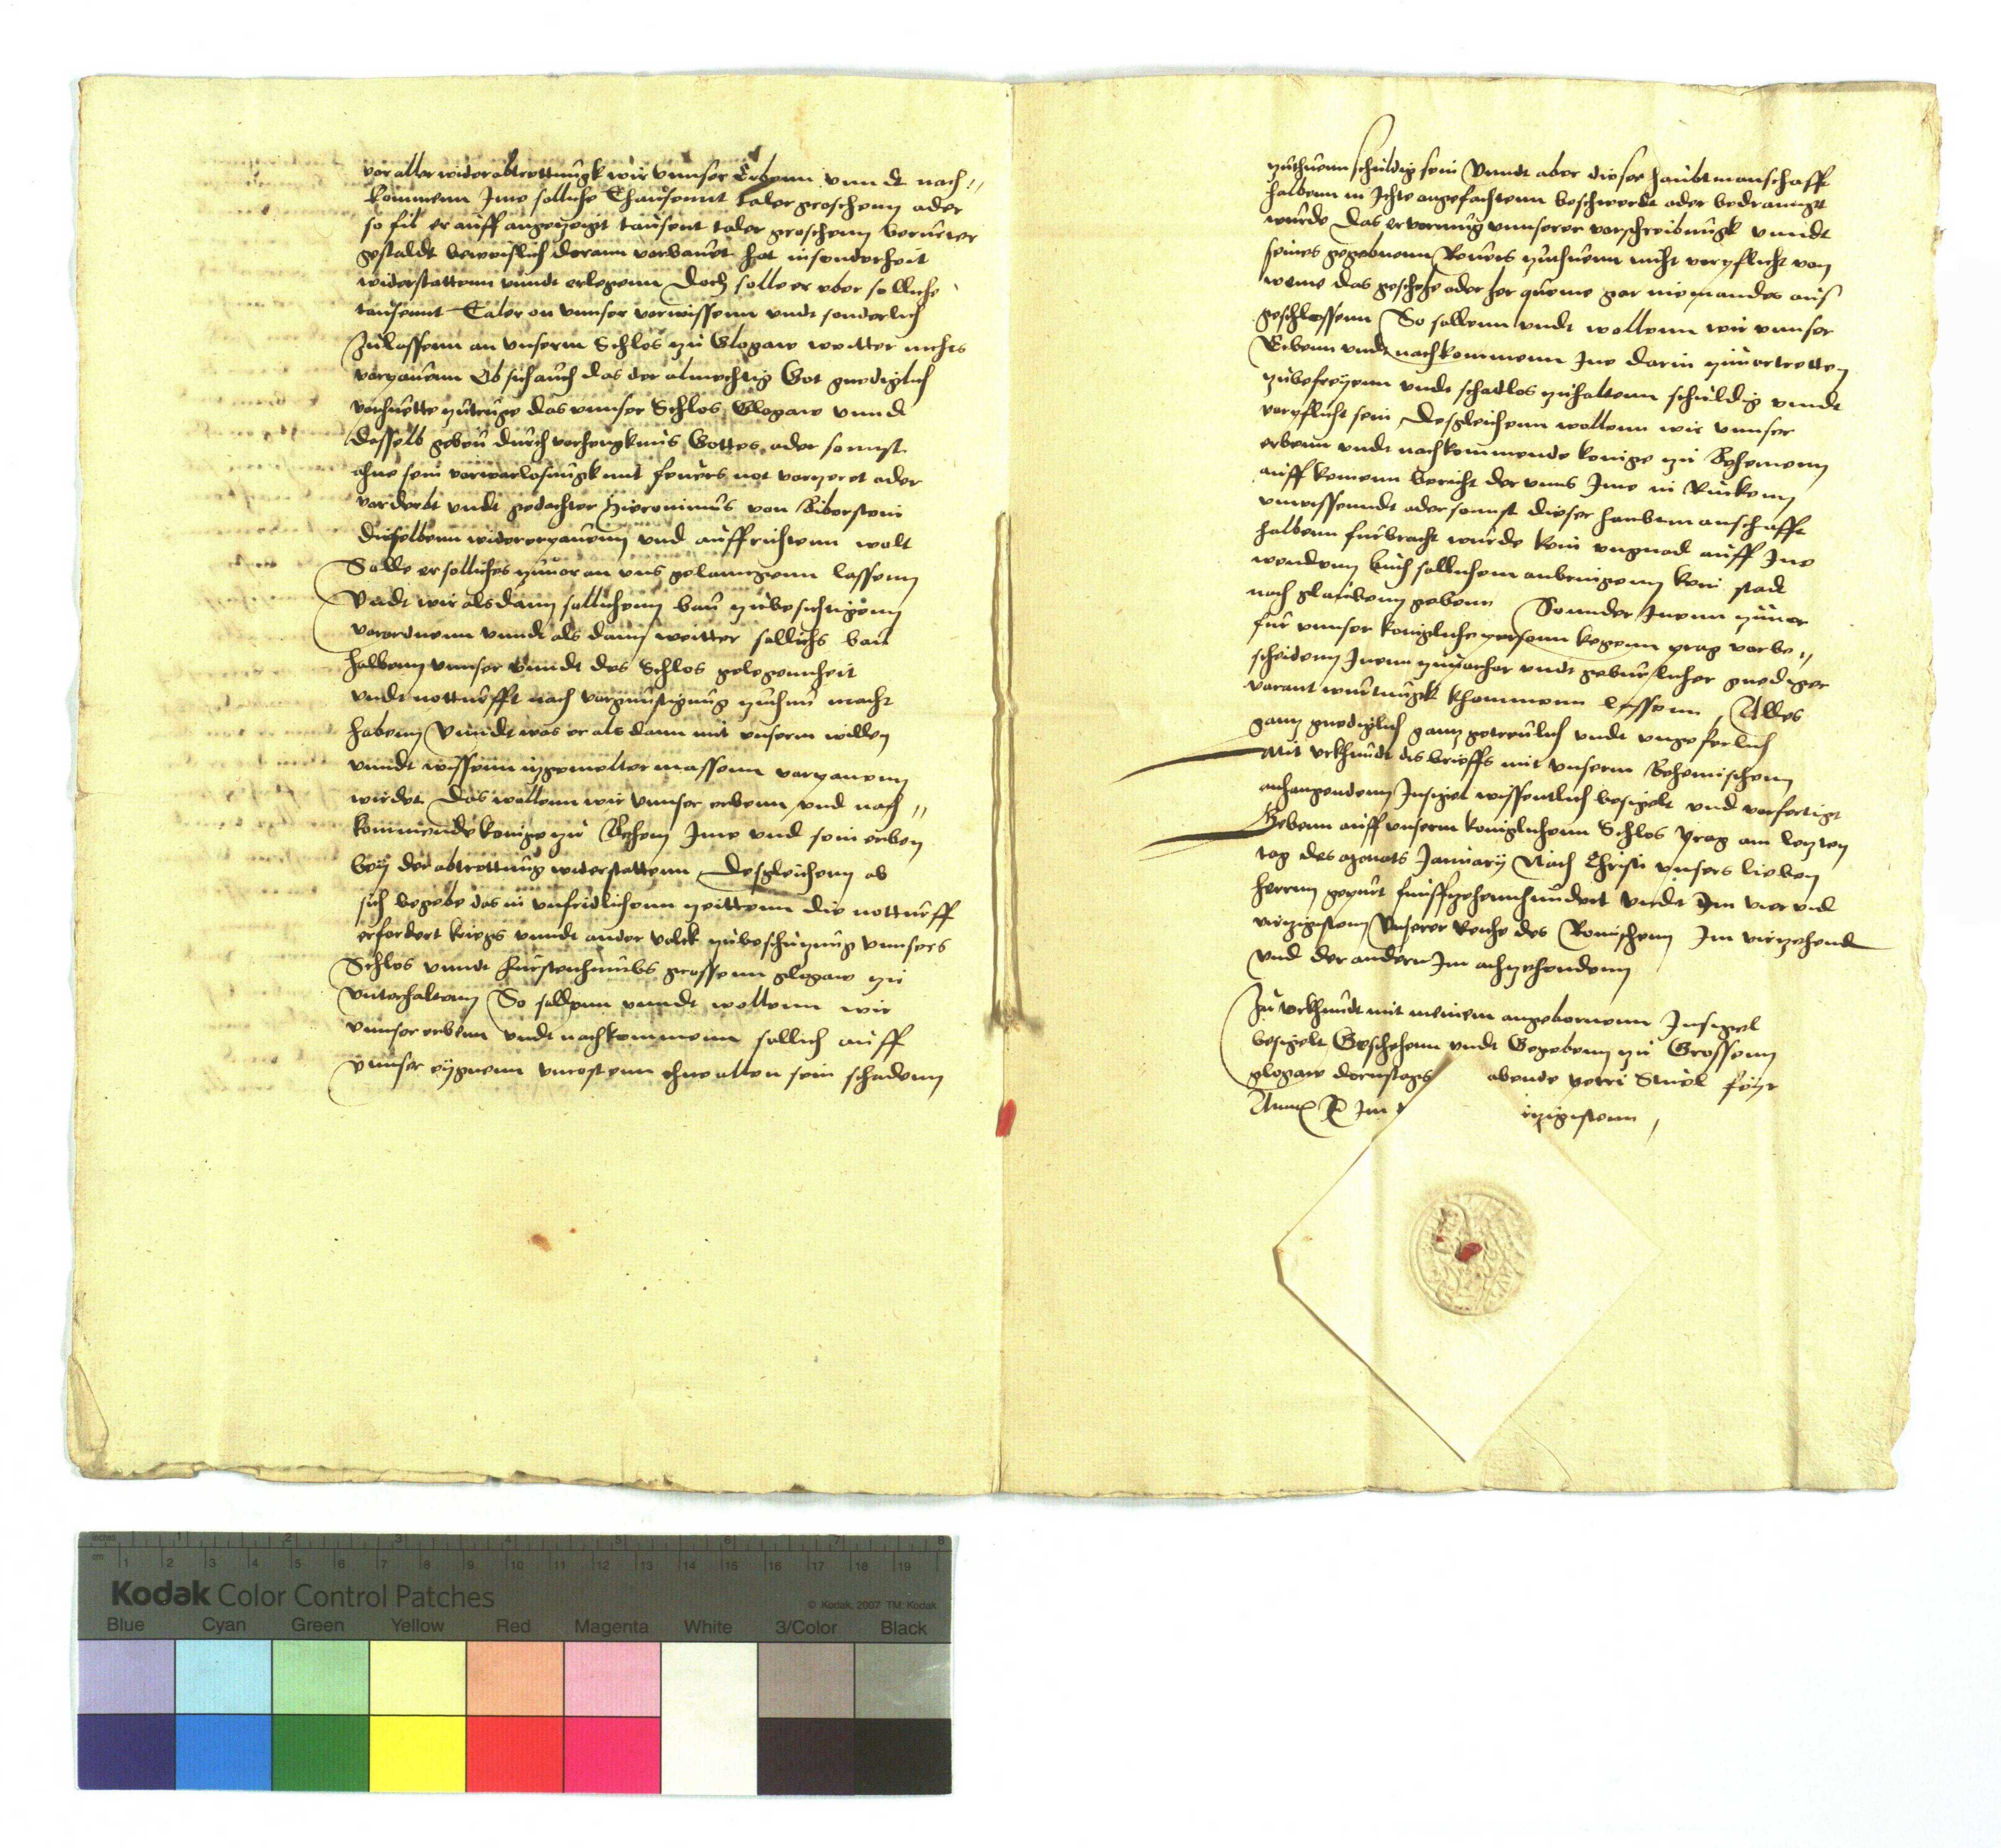 vor aller widerabtrettungk wir vnnser Erbenn vnnd nach„
kommenn Jme solliche Thausennt taler groschenn ader
so fil er auff angezeigt tausent taler groschenn berurter
gestaldt beweislich daran vorbauet hat insonderheit
widerstattenn vnndt erlegenn Doch solle er vber solliche
tausennt Taler on vnnser vorwissenn vndt sonderlich
Zulassenn an vnserm Schlos zu Glogaw weitter nichts
vorpauenn Ob sich auch das der almechtig Got gnediglich
vorhuette zutruge das vnnser Schlos Glogaw vnnd
desselb gebeu durch vorhengknus Gottes ader sonnst
ahne sein vorwarlosungk mit feuers not vorzeret ader
vorderbt vndt gedachter Hieronimus von Biberstein
dieselbenn widererpauenn vnd auffrichtenn wolt
Solle er solliches zuuor an vns gelanngenn lassenn
Vndt wir alsdann sollichenn bau zubesichtigenn
verordnenn vnndt als dann weitter sollichs bau
halbenn vnnser vnndt des Schlos gelegennheit
vndt notturfft nach vorgunstigung zuthun macht
habenn Vnndt was er als dann mit vnserm willen
vnndt wissenn itzgemelter massenn vorpauenn
wirdet Das wollenn wir vnnser erbenn vnd nach„
kommende konige zu Behem Jme vnd sein erben
bey der abtrettung widerstattenn Desgleichenn ab
sich begebe das in vnfridlichenn zeittenn die notturfft
erfordert kriegs vnndt ander volck zubeschutzung vnnsers
Schlos vnndt furstenthumbs grossenn glogaw zu
vnterhaltenn So sollenn vnndt wollenn wir
vnnser erbenn vndt nachkommenn sollich auff
vnnser eygnenn vncostenn ahne allen sein schadenn
zuthuenn schuldig sein Vnndt aber dieser haubtmanschafft
halbenn in Ichte angefachtenn beschwerdt ader bedranngt
wurde das er vermug vnnserer vorschreibungk vnndt
seines gegebnenn Reuers zuthuenn nicht vorpflicht von
weme das geschehe ader her queme gar niemandes aus
geschlossenn So sollenn vndt wollenn wir vnnser
Erbenn vndt nachkommenn Jne darin zuuortretten
zubefreyenn vndt schadlos zuhaltenn schuldig vnndt
vorpflicht sein Desgleichenn wollenn wir vnnser
erbenn vndt nachkommende konige zu Behemenn
auff kemenn bericht der vnns Jme in Ruckenn
vnwissenndt ader sonnst dieser haubtmanschafft
halbenn furbracht wurde kein vngnad auff Jne
wendenn Auch sollichem anbringenn kein stadt
noch glaubenn gebenn Sonnder Jnenn zuuor
fur vnnser konigliche personn kegenn prag vorbe„
scheidenn Jnenn zuuorhor vndt geburlicher gnediger
vorantwurtungk khommenn lassenn Alles
gantz gnediglich gantz getreulich vndt vngeferlich
Mit vrkhundt dis brieffs mit vnserm Behemischenn
anhangendenn Jnsigel wissentlich besigelt vnd vorfertigt
Gebenn auff vnserm koniglichenn Schlos Prag am letzten
tag des Monats Januarij Nach Christi vnsers lieben
herrnn gepurt funffzehennhundert vndt Jm vier vnd
virzigistenn Vnserer Reiche des Romischenn Jm virzehend
vnd der andern Jm achzehendenn
Zu vrkhundt mit meinem angebornenn Jnsigel
besigelt Geschehenn vndt Gegebenn zu Grossenn
glogaw dornstags abende petri Stuel feyr
Anno Jm irzigistenn
Kodak Color Control Patches
© Kodak, 2007 TM: Kodak
Blue Cyan Green Yellow Red Magenta White 3/Color Black